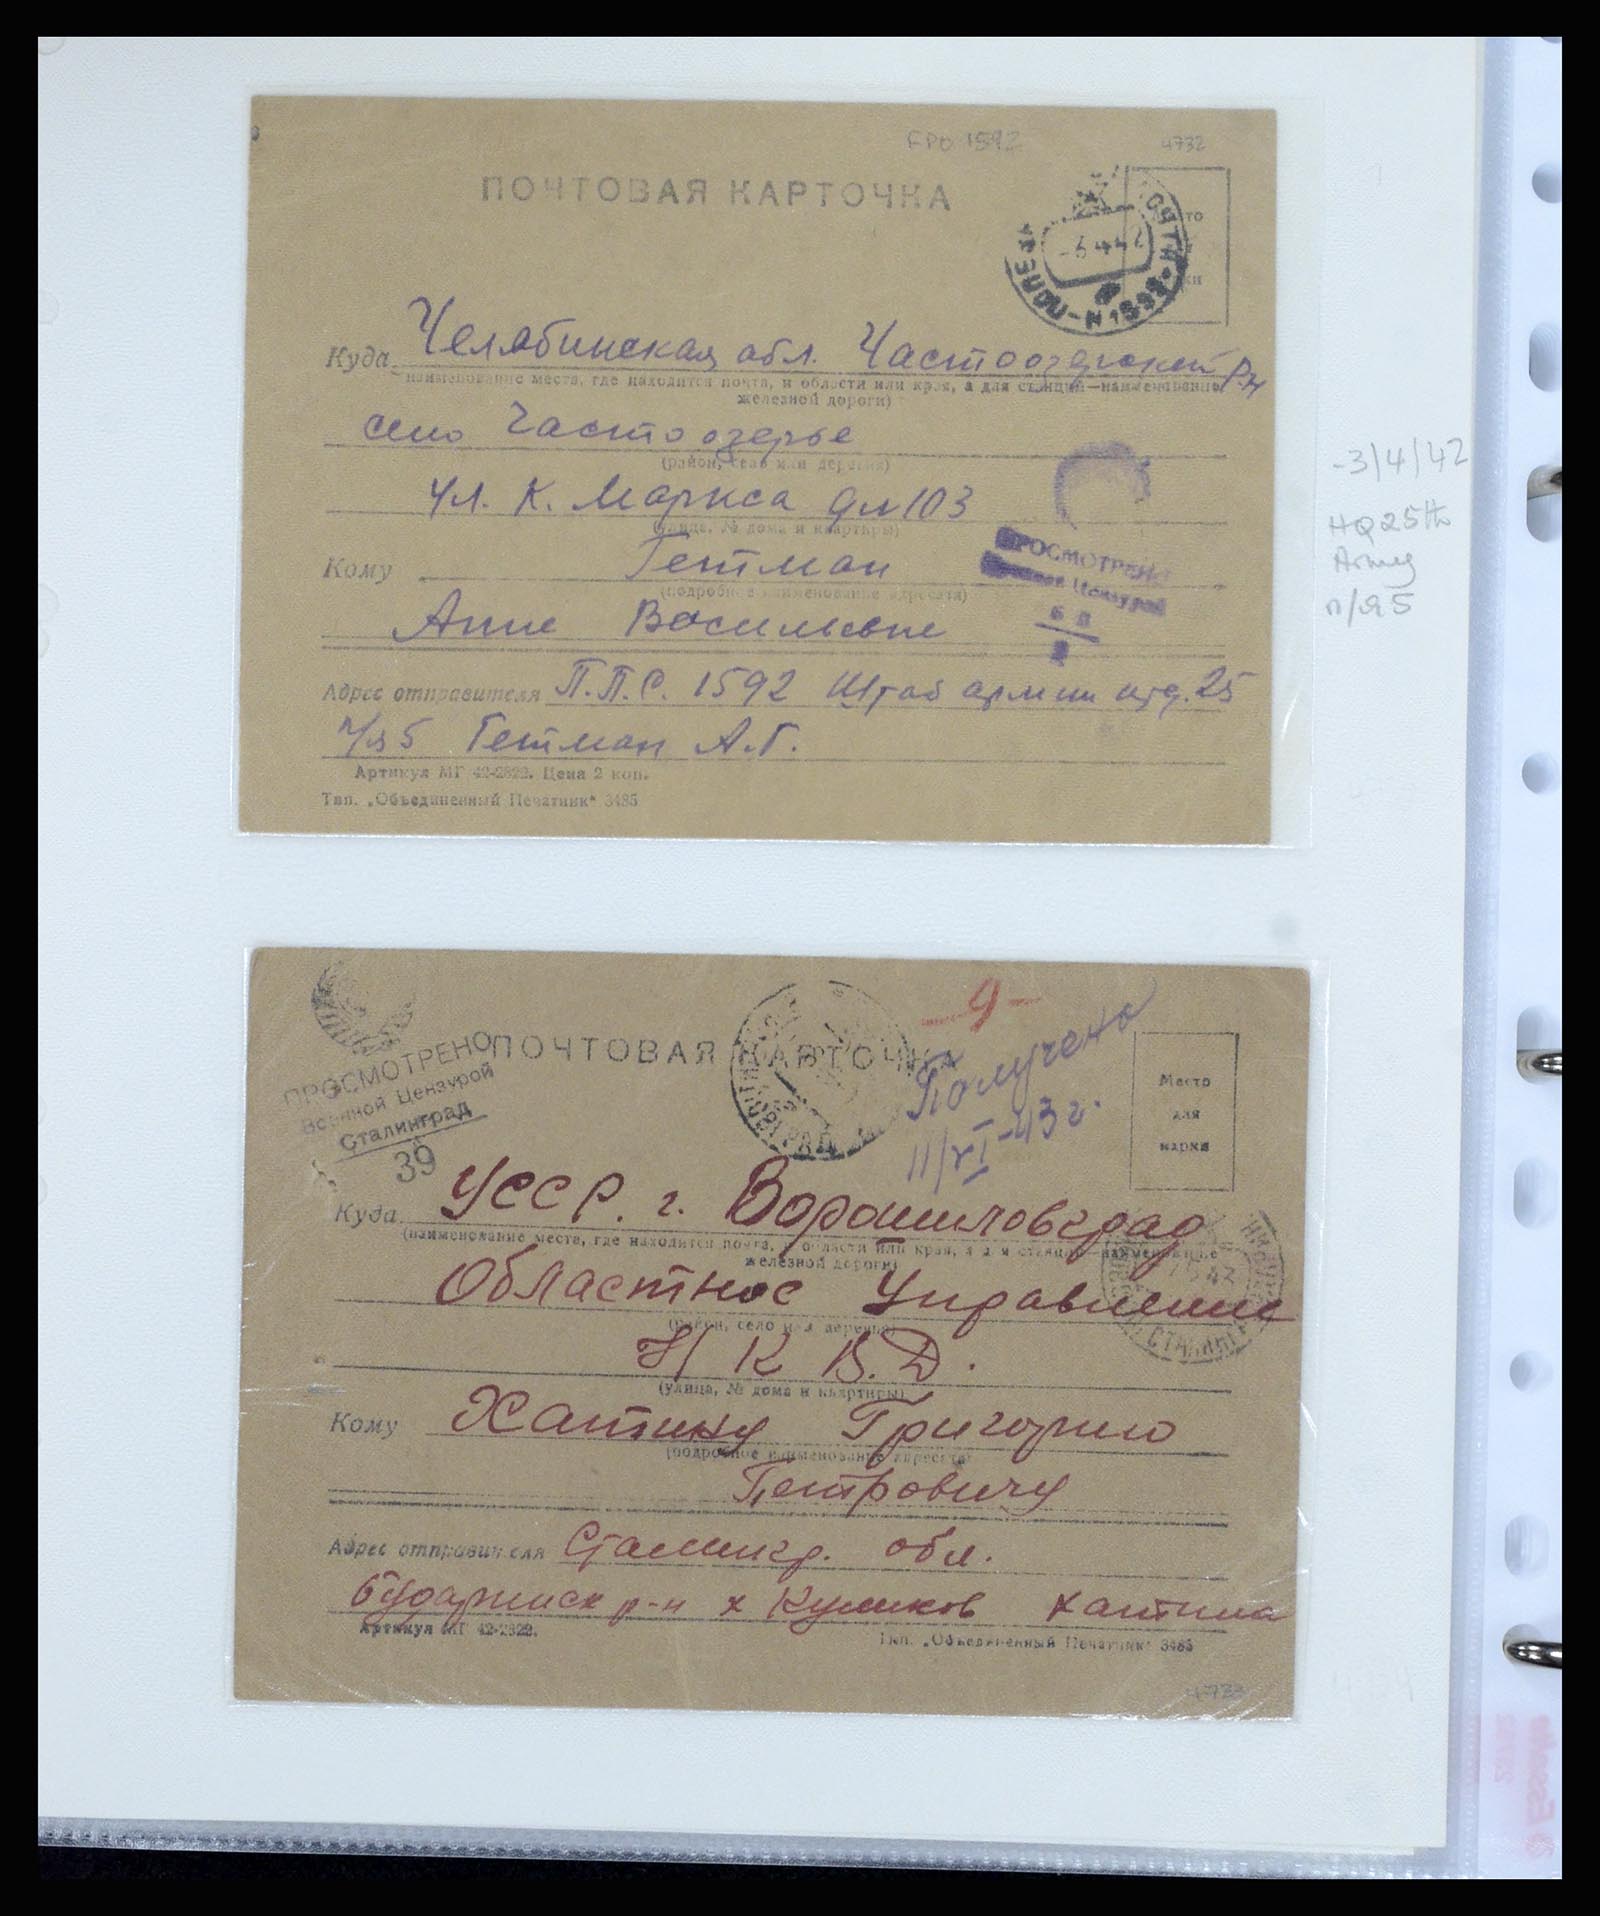 FPO 1592
4732
ПОЧТОВАЯ КАРТОЧКА
-3 4 42
Куда Челябинская обл. Частоозерский Р-н
наименование места, где находится почта, и области или края, а для станций—наименование
железной дороги)
село Частоозерье
(район, село или деревня)
Ул. К. Маркса дм 103
(улица, № дома и квартиры)
Кому Гетман
(подробное наименование адресата)
Анне Васильевне
ПРОСМОТРЕНО
Военной Цензурой
Адрес отправителя П.П.С. 1592 Штаб армии отд. 25
п/я 5 Гетман А.Г.
Артикул МГ 42-2822. Цена 2 коп.
Тип. „Объединенный Печатник“ 3485
-3/4/42
HQ 25th
Army
п/я 5
-9-
ПОЧТОВАЯ КАРТОЧКА
Получено
11/VI-43 г.
ПРОСМОТРЕНО
Военной Цензурой
Сталинград
39
Место
для
марки
Куда УССР. г. Ворошиловград
(наименование места, где находится почта, и области или края, а для станций—наименование
железной дороги)
Областное Управление
(район, село или деревня)
Н К В.Д.
(улица, № дома и квартиры)
Кому Хатину Григорию
(подробное наименование адресата)
Петровичу
Адрес отправителя Сталингр. обл.
Бударинск р-н х Куликов Хатина
Артикул МГ 42-2822.
Тип. „Объединенный Печатник“ 3485
4733
Esselte